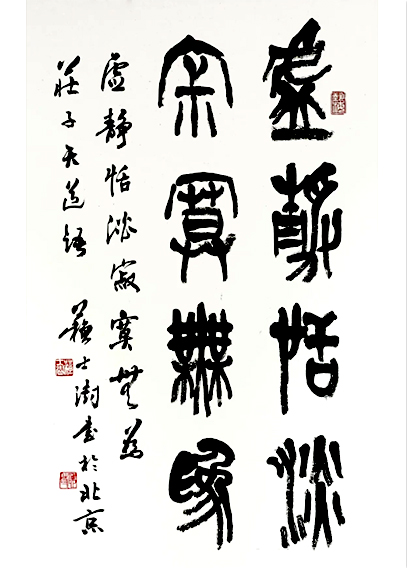 虛靜恬淡
寂寞無為
虛靜恬淡寂寞無為
莊子天道語 蘇士澍書於北京